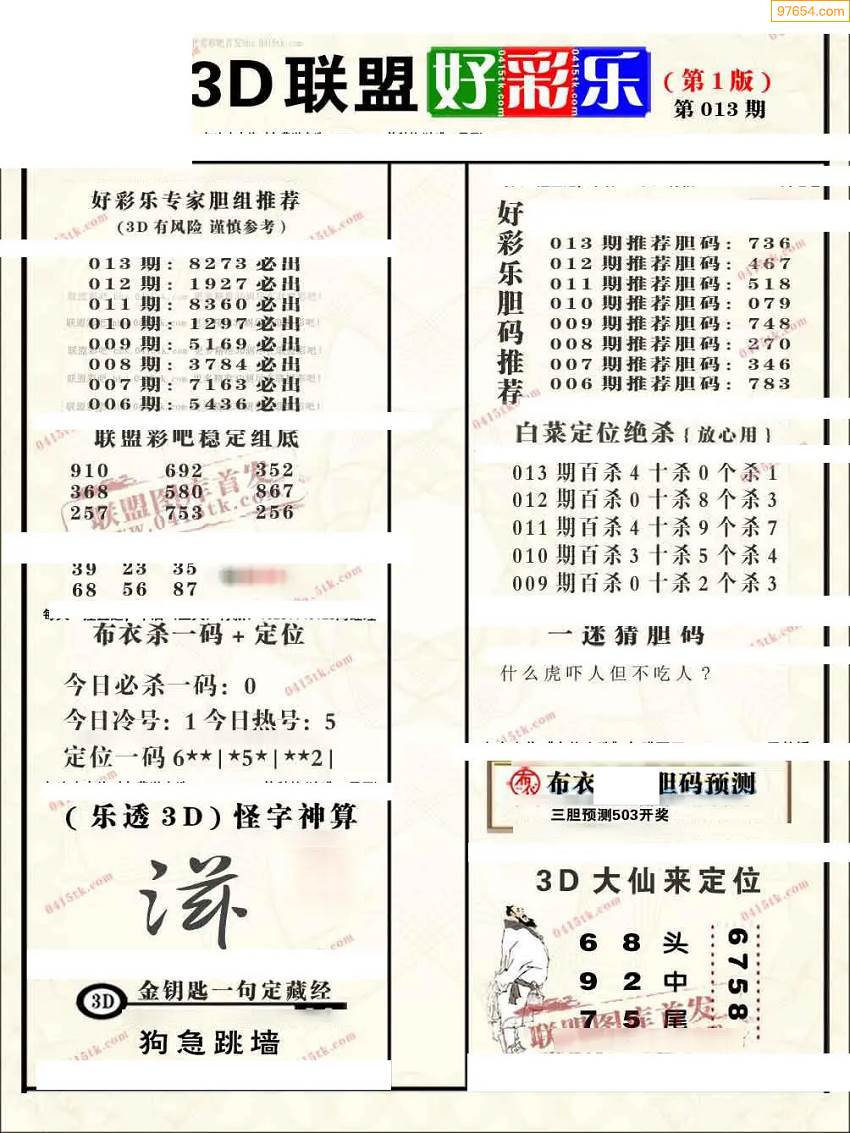 97654.com
3D联盟好彩乐
(第1版)
第013期
好彩乐专家胆组推荐
(3D有风险 谨慎参考)
013期: 8273必出
012期: 1927必出
011期: 8360必出
010期: 1297必出
009期: 5169必出
008期: 3784必出
007期: 7163必出
006期: 5436必出
联盟彩吧稳定组底
910 692 352
368 580 867
257 753 256
39 23 35
68 56 87
布衣杀一码+定位
今日必杀一码: 0
今日冷号: 1 今日热号: 5
定位一码 6**|*5*|**2|
(乐透3D)怪字神算
滋
3D 金钥匙一句定藏经
狗急跳墙
好彩乐胆码推荐
013期推荐胆码: 736
012期推荐胆码: 467
011期推荐胆码: 518
010期推荐胆码: 079
009期推荐胆码: 748
008期推荐胆码: 270
007期推荐胆码: 346
006期推荐胆码: 783
白菜定位绝杀{放心用}
013期百杀4十杀0个杀1
012期百杀0十杀8个杀3
011期百杀4十杀9个杀7
010期百杀3十杀5个杀4
009期百杀0十杀2个杀3
一迷猜胆码
什么虎吓人但不吃人?
布衣 胆码预测
三胆预测503开奖
3D大仙来定位
6 8 头
9 2 中
7 5 尾
6758
联盟图库首发
www.0415tk.com
联盟图库首发
0415tk.com